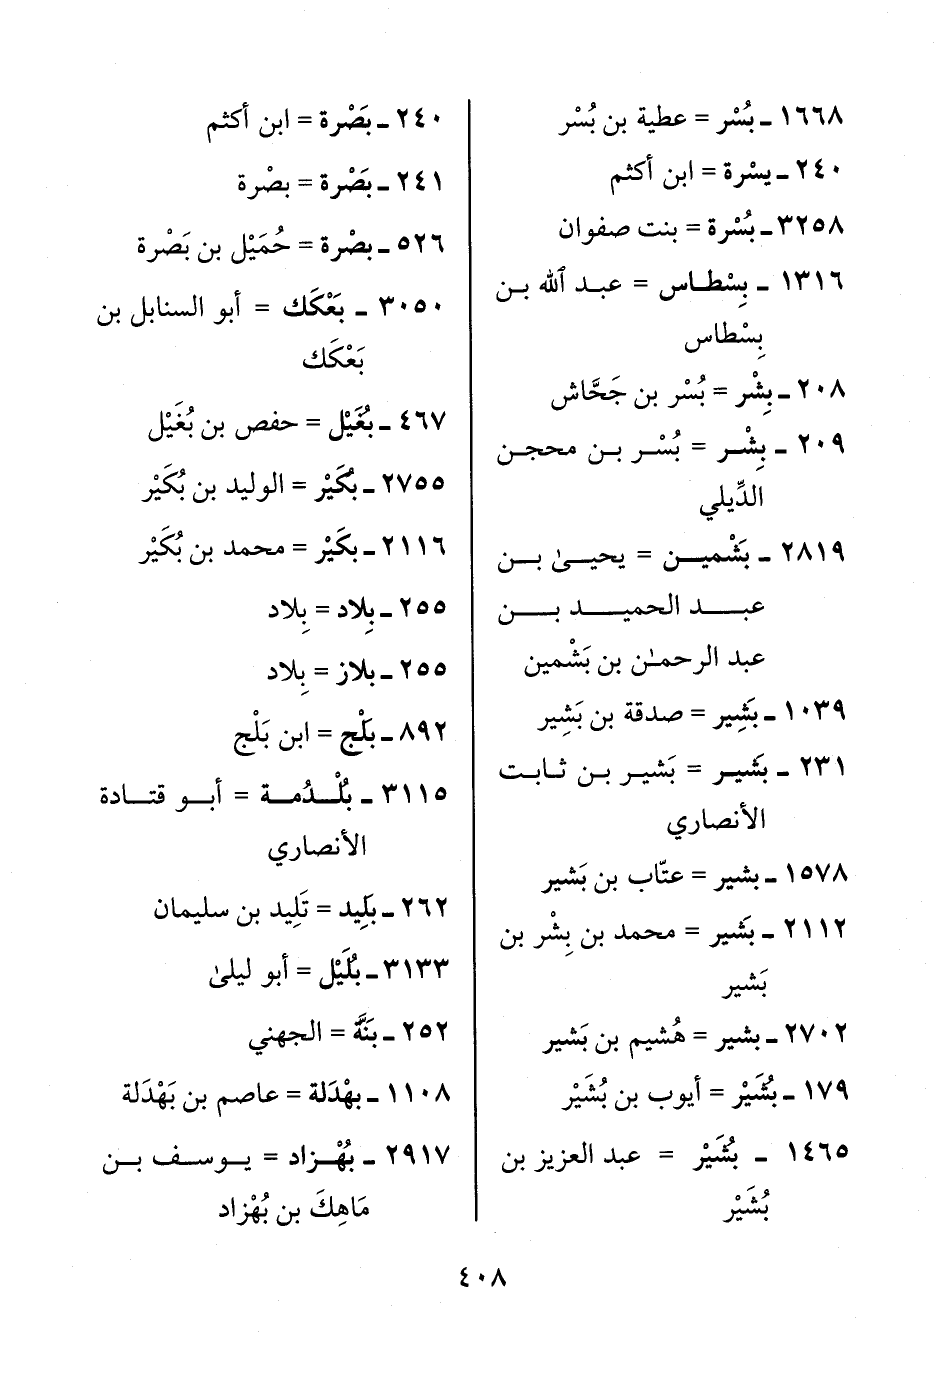 ١٦٦٨ ـ بُسْر = عطية بن بُسْر
٢٤٠ ـ يسْرة = ابن أكثم
٣٢٥٨ ـ بُسْرة = بنت صفوان
١٣١٦ ـ بِسْطاس = عبد الله بن
بِسْطاس
٢٠٨ ـ بِشْر = بُسْر بن جَحَّاش
٢٠٩ ـ بِشْر = بُسْر بن محجن
الدِّيلي
٢٨١٩ ـ بَشْمين = يحيىٰ بن
عبد الحميد بن
عبد الرحمـٰن بن بَشْمين
١٠٣٩ ـ بَشِير = صدقة بن بَشِير
٢٣١ ـ بَشير = بَشير بن ثابت
الأنصاري
١٥٧٨ ـ بشير = عتّاب بن بَشير
٢١١٢ ـ بَشير = محمد بن بِشْر بن
بَشير
٢٧٠٢ ـ بشير = هُشيم بن بَشير
١٧٩ ـ بُشَيْر = أيوب بن بُشَيْر
١٤٦٥ ـ بُشَيْر = عبد العزيز بن
بُشَيْر
٢٤٠ ـ بَصْرة = ابن أكثم
٢٤١ ـ بَصْرة = بصْرة
٥٢٦ ـ بصْرة = حُمَيْل بن بَصْرة
٣٠٥٠ ـ بَعْكَك = أبو السنابل بن
بَعْكَك
٤٦٧ ـ بُغَيْل = حفص بن بُغَيْل
٢٧٥٥ ـ بُكَيْر = الوليد بن بُكَيْر
٢١١٦ ـ بكَيْر = محمد بن بُكَيْر
٢٥٥ ـ بِلاد = بِلاد
٢٥٥ ـ بلاز = بِلاد
٨٩٢ ـ بَلْج = ابن بَلْج
٣١١٥ ـ بُلْدُمة = أبو قتادة
الأنصاري
٢٦٢ ـ بَلِيد = تَلِيد بن سليمان
٣١٣٣ ـ بُلَيْل = أبو ليلىٰ
٢٥٢ ـ بَنَّة = الجهني
١١٠٨ ـ بهْدَلة = عاصم بن بَهْدَلة
٢٩١٧ ـ بُهْزاد = يوسف بن
مَاهِكَ بن بُهْزاد
٤٠٨